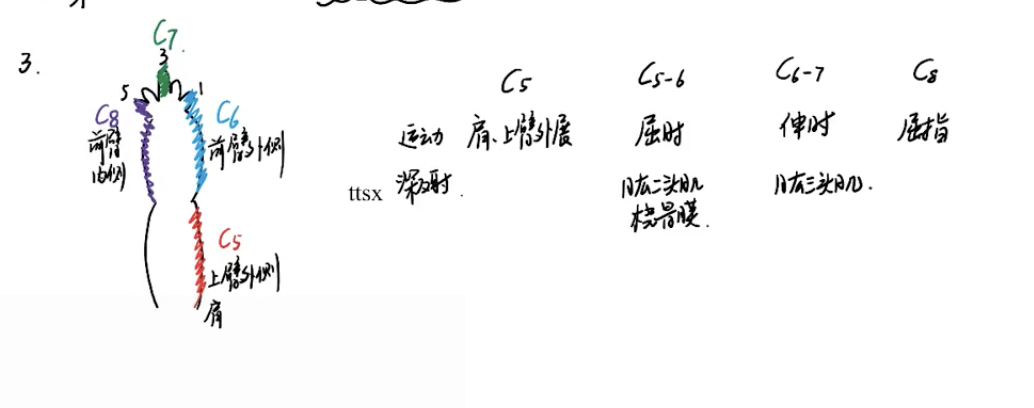 3.
C7
3
5 1
C8
前臂
内侧
C6
前臂外侧
C5
上臂外侧
肩
C5 C5-6 C6-7 C8
运动 肩、上臂外展 屈肘 伸肘 屈指
ttsx 深反射. 肱二头肌 肱三头肌.
桡骨膜.